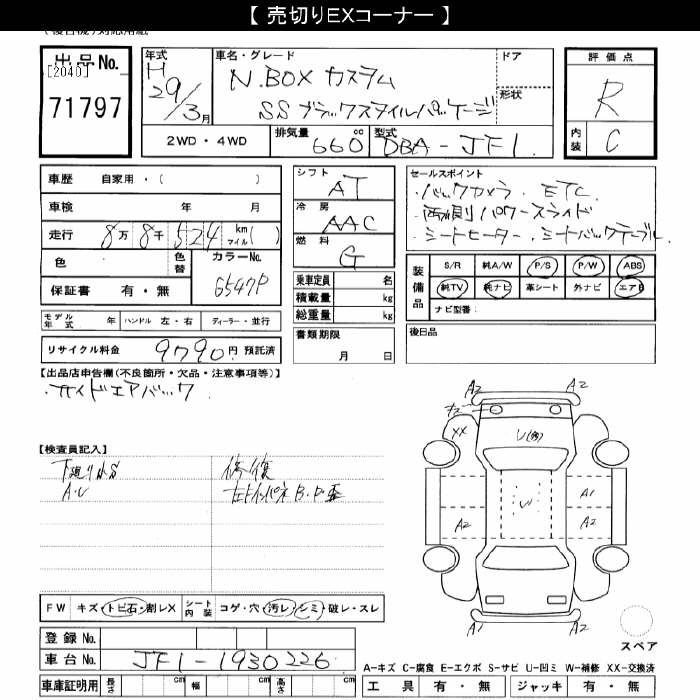 【 売切りEXコーナー 】
出品No.
[2040]
71797
年式
H
29/3月
車名・グレード
N.BOX カスタム
SSブラックスタイルパッケージ
ドア
形状
評価点
R
内装
C
2WD・4WD
排気量
660cc
型式
DBA-JF1
車歴 自家用・( )
車検 年 月
走行 8万8千524 km マイル( )
色
色替
カラーNo.
G547P
保証書 有・無
シフト
AT
冷房
AAC
燃料
G
乗車定員 名
積載量 kg
総重量 kg
セールスポイント
・バックカメラ ・ETC
・両側パワースライド
・シートヒーター ・シートバックテーブル
装備品
S/R 純A/W P/S P/W ABS
純TV 純ナビ 革シート 外ナビ エアB
ナビ型番:
モデル年式 年 ハンドル 左・右 ディーラー・並行
リサイクル料金 9790円 預託済
書類期限
月 日
後日品
【出品店申告欄(不良箇所・欠品・注意事項等)】
・サイドエアバック
【検査員記入】
下廻りサS
A・U
修復
A2 A2
XX
U(修)
U
A1
A2 A2
A2 A2
FW キズ・トビ石・割レX シート内装 コゲ・穴・汚レ・シミ・破レ・スレ
登録No.
車台No. JF1-1930226
車庫証明用 長さ cm 幅 cm 高さ cm
スペア
A-キズ C-腐食 E-エクボ S-サビ U-凹ミ W-補修 XX-交換済
工具 有・無 ジャッキ 有・無